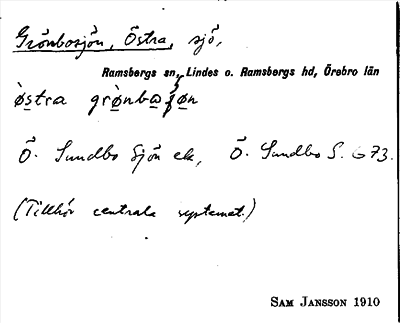 Grönbosjön, Östra, sjö,
Ramsbergs sn, Lindes o. Ramsbergs hd, Örebro län
östra grönbaʃøn
Ö. Sundbo Sjön ek, Ö. Sundbo S. G 73.
(Tillhör centrala systemet.)
SAM JANSSON 1910